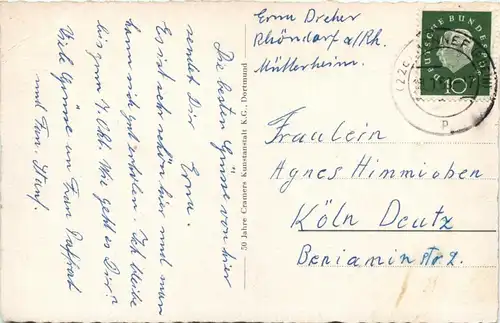 Die besten Grüsse von hier
sendet Dir Erna.
Es ist sehr schön hier und man
kann sich gut erholen. Ich bleibe
bis zum 7. Okt. Wie geht es Dir?
Viele Grüsse an Frau
und Fam.
50 Jahre Cramers Kunstanstalt K.G., Dortmund
Erna Dreher
Rhöndorf a/Rh.
Mütterheim.
DEUTSCHE BUNDESPOST
10
(22c
p
Fräulein
Agnes Himmichen
Köln Deutz
Benjaminstr 2.